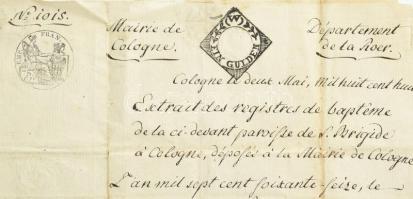 N.º 1015.
Mairie de
Cologne.
W
EIN GULDEN
Département
de la Roer.
FRAN
Cologne le deux Mai, mil huit cent huit
Extrait des registres de baptême
de la ci-devant paroisse de S. Brigide
à Cologne, déposés à la Mairie de Cologne
L'an mil sept cent soixante-seize, le